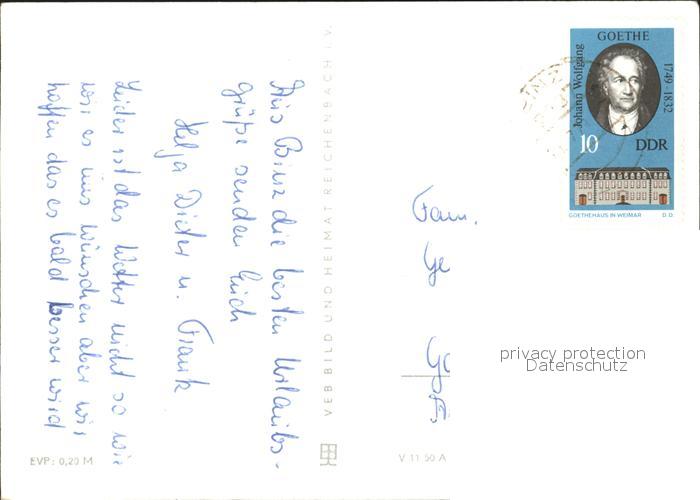 Aus Binz die besten Urlaubs-
grüße senden Euch
Helga Dieter u. Frank
Leider ist das Wetter nicht so wie
wir es uns wünschen aber wir
hoffen das es bald besser wird
VEB BILD UND HEIMAT REICHENBACH I. V.
EVP: 0,20 M
V 11 50 A
Fam.
Ge
GOETHE
Johann Wolfgang
1749-1832
10
DDR
GOETHEHAUS IN WEIMAR
D.D.
privacy protection
Datenschutz